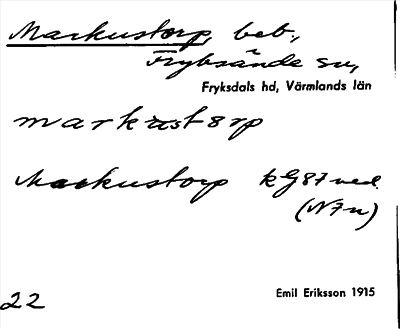 Markustorp, beb.,
Fryksände sn,
Fryksdals hd, Värmlands län
markust8rp
Markustorp kG87ved.
(N7n)
22
Emil Eriksson 1915